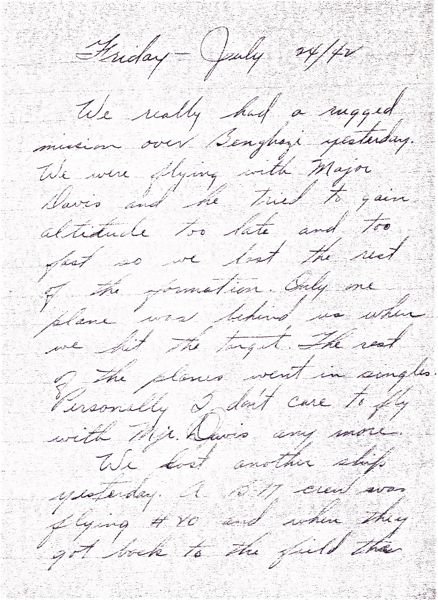 Friday - July 24/42
We really had a rugged
mission over Benghazi yesterday.
We were flying with Major
Davis and he tried to gain
altitude too late and too
fast so we lost the rest
of the formation. Only one
plane was behind us when
we hit the target. The rest
of the planes went in singles.
Personally I don't care to fly
with Mjr. Davis any more.
We lost another ship
yesterday. A B-17 crew was
flying #40 and when they
got back to the field the